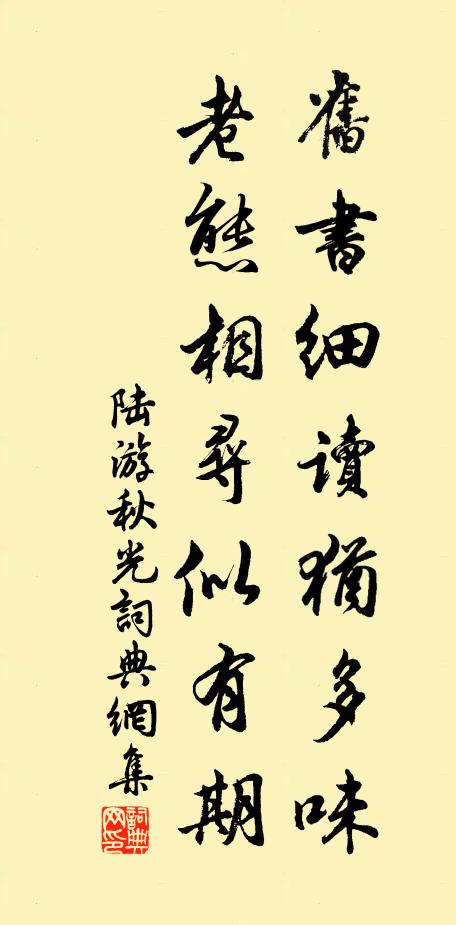 舊書細讀猶多味
老態相尋似有期
陸游秋光詞典網集
詞典网印